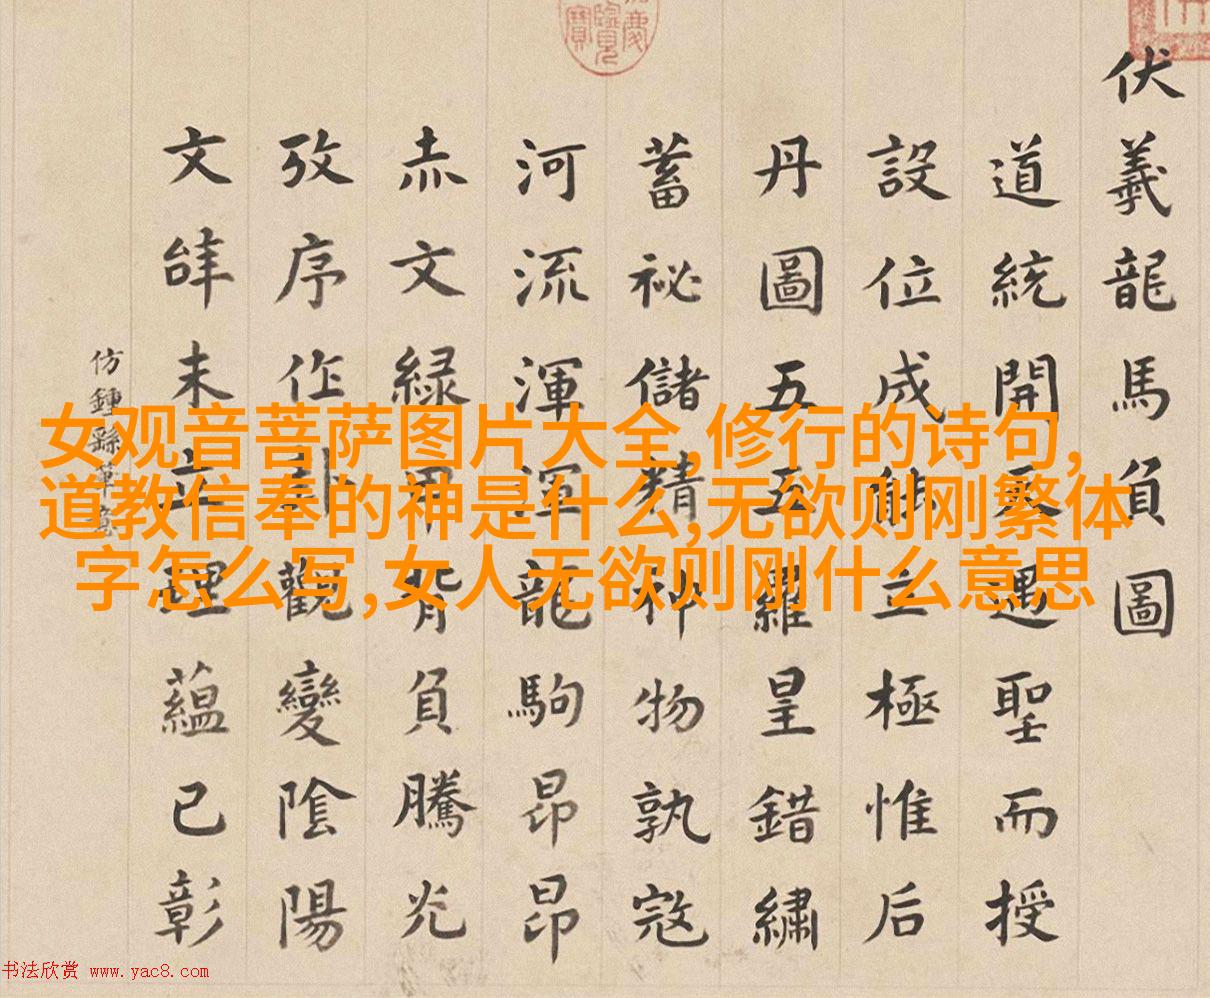 伏羲龍馬負圖
道統開天遇聖而授
設位成能立極惟后
丹圖五五羅皇錯繡
蓄祕儲精神物孰寇
河流渾渾龍駒昂昂
赤文緑甲背負騰光
攷序作卦觀變陰陽
文未立理蘊已彰
仿鍾繇筆意
女观音菩萨图片大全,修行的诗句,
道教信奉的神是什么,无欲则刚繁体
字怎么写,女人无欲则刚什么意思
书法欣赏 www.yac8.com